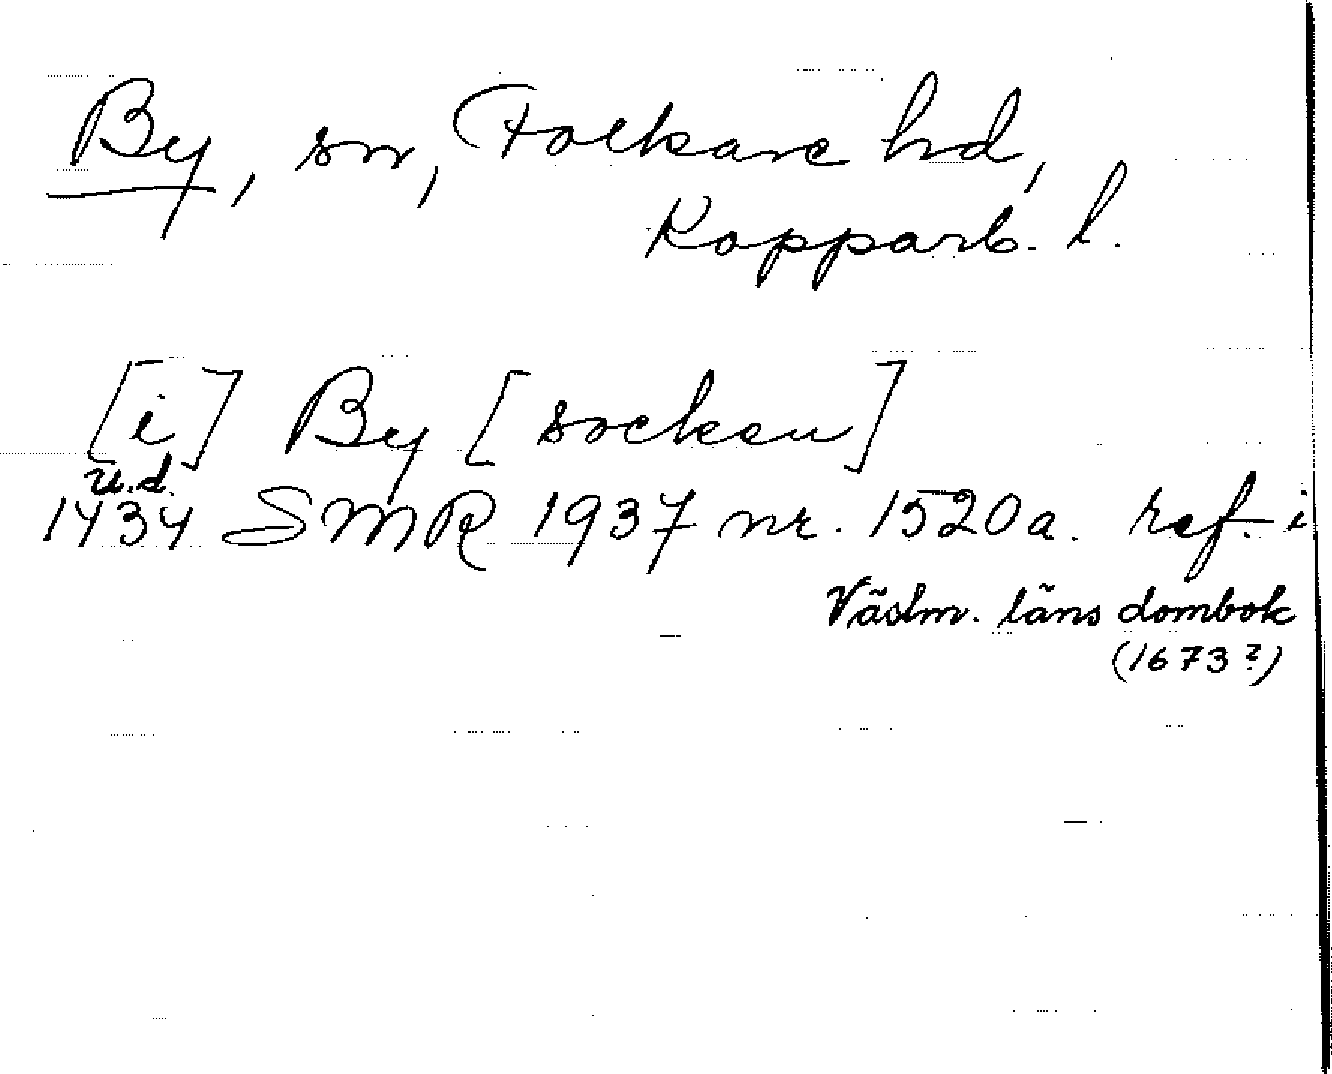 By, sn, Folkare hd,
Kopparb. l.
[i] By [socken]
u.d.
1434 SMR 1937 nr. 1520a. ref. i
Västm. läns dombok
(1673?)